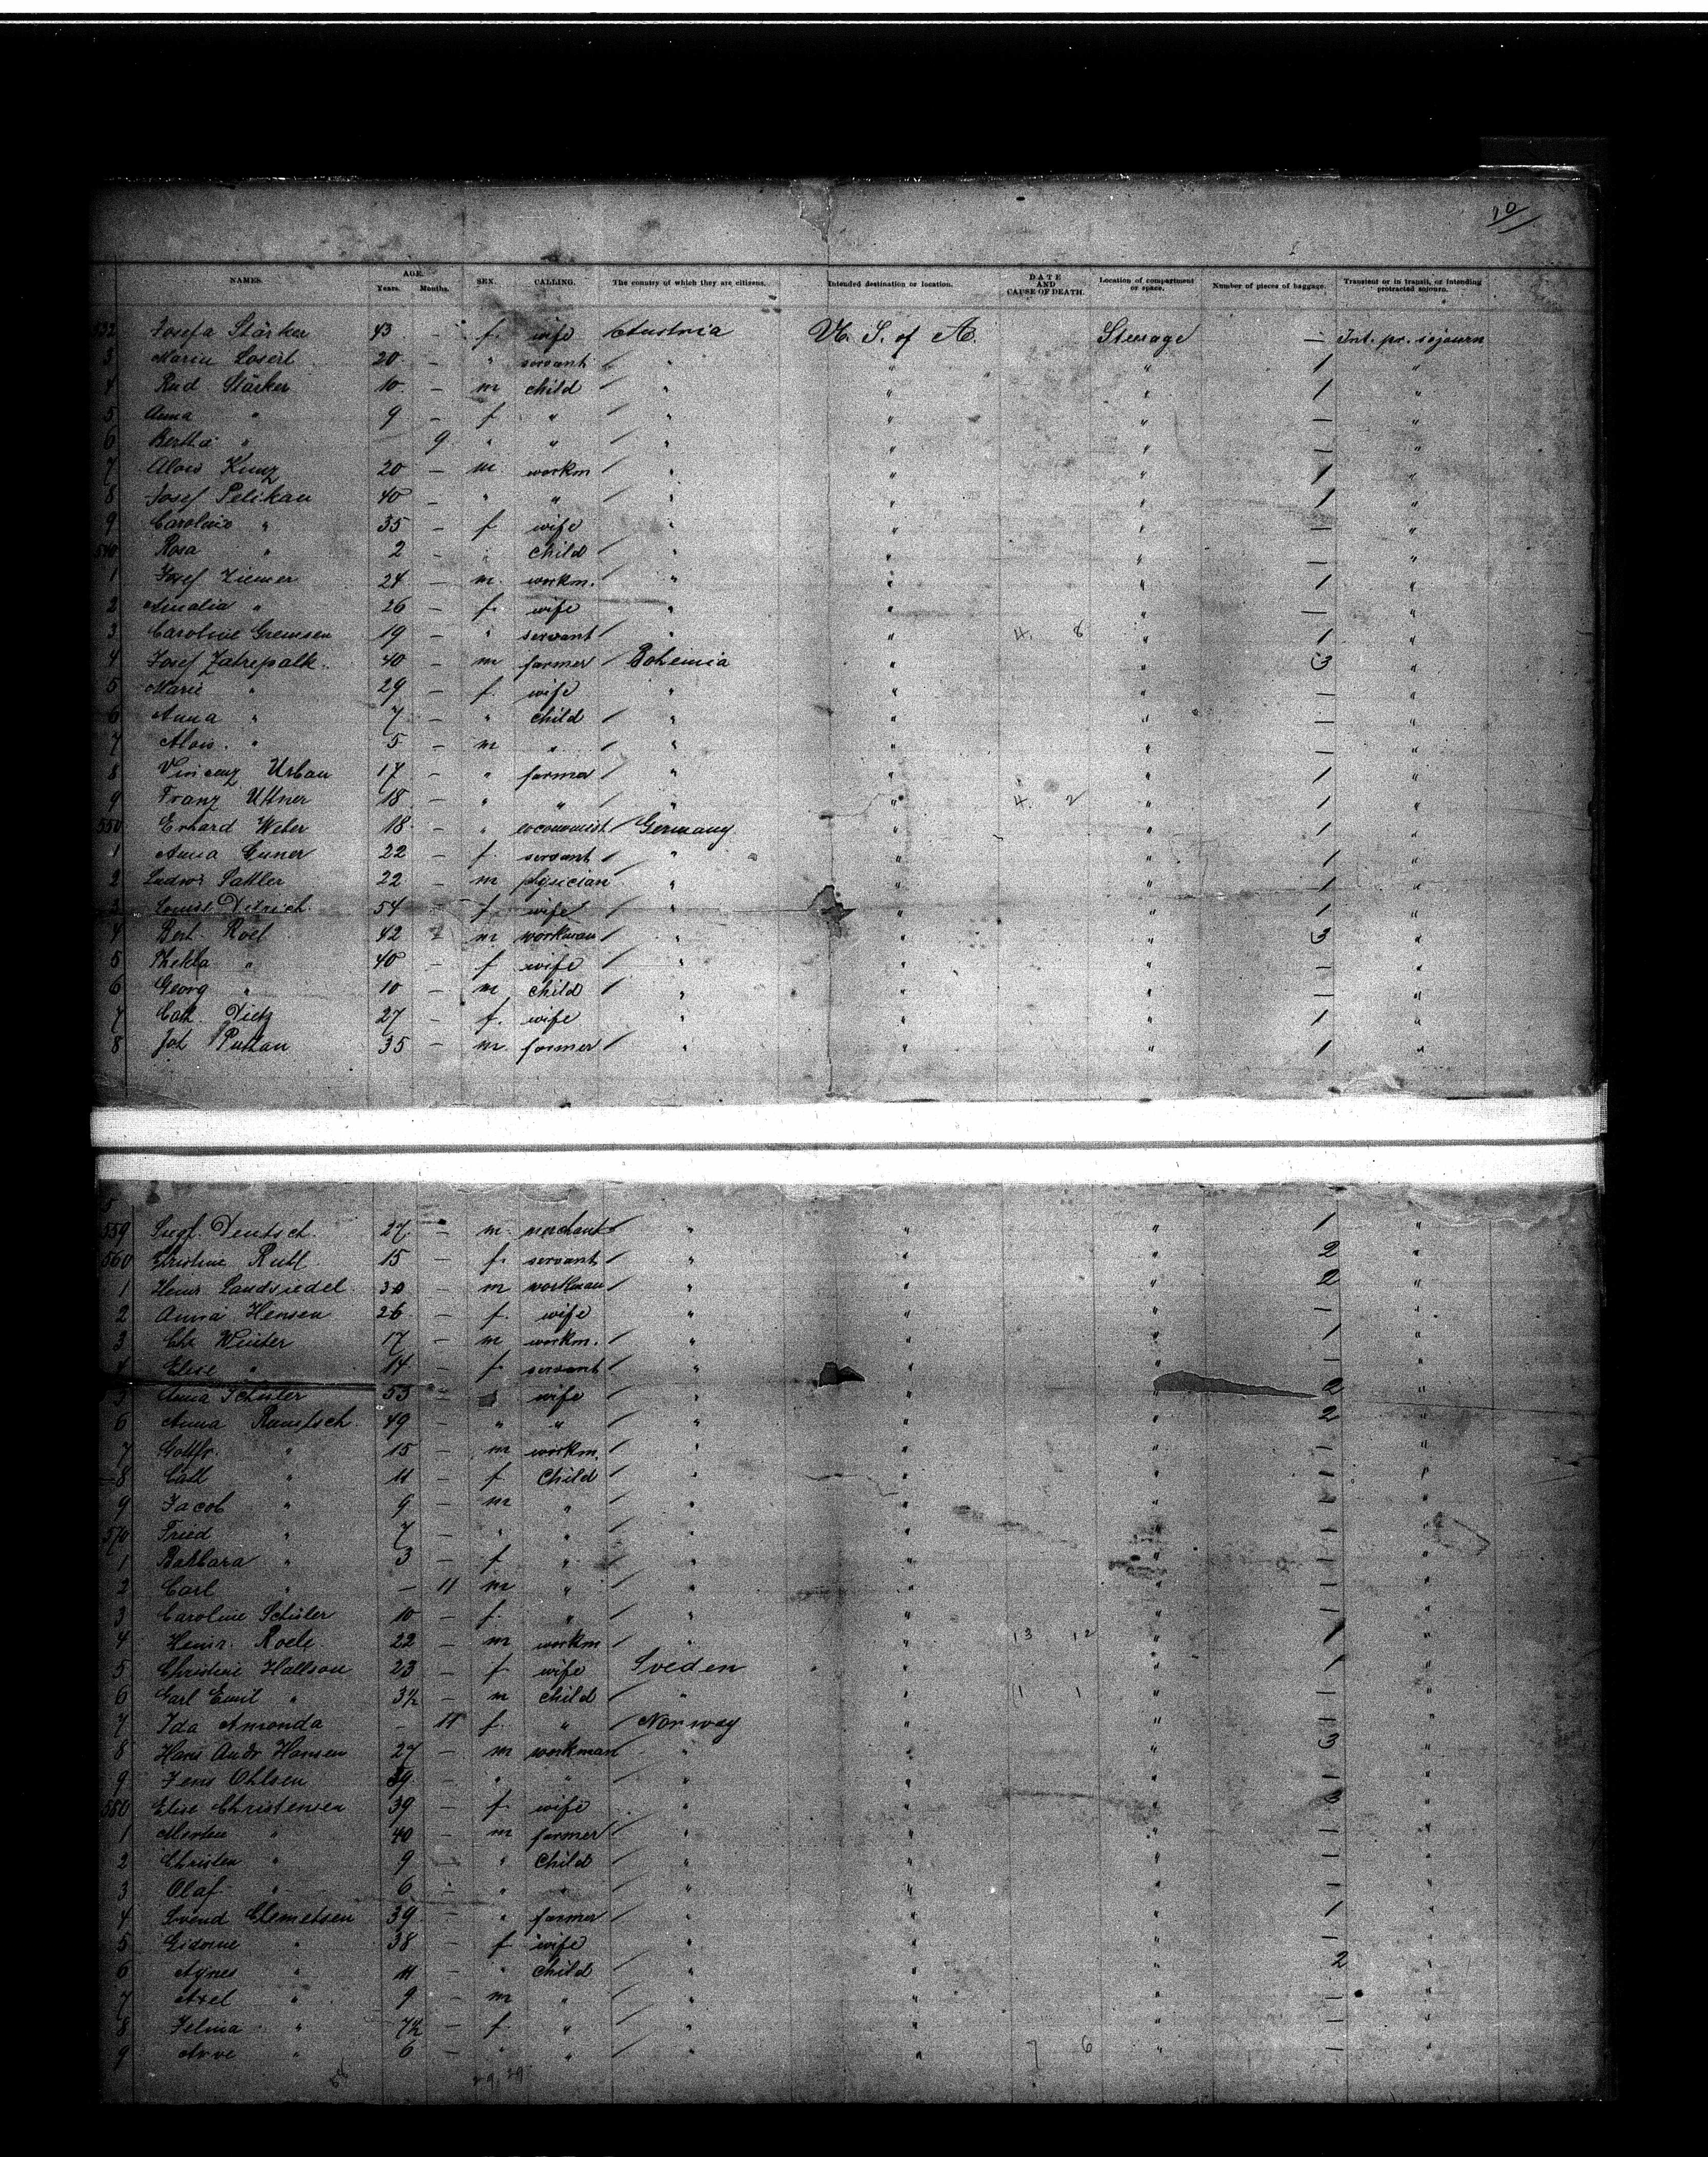 10
NAMES. AGE. Years. Months. SEX. CALLING. The country of which they are citizens. Intended destination or location. DATE AND CAUSE OF DEATH. Location of compartment or space. Number of pieces of baggage. Transient or in transit, or intending protracted sojourn.
532 Josefa Stärker 43 — f. wife Austria U. S. of A. Steerage — Int. pr. sojourn
3 Marie Losert 20 — " servant / " " " 1 "
4 Rud Stärker 10 — m child / " " " 1 "
5 Anna " 9 — f " / " " " — "
6 Bertha " 9 " " / " " " — "
7 Alois Kunz 20 — m workm / " " " 1 "
8 Josef Pelikan 40 — " " / " " " 1 "
9 Caroline " 35 — f wife " " " — "
540 Rosa " 2 — " child / " " " — "
1 Josef Ziemer 24 — m. workm. / " " " 1 "
2 Amalia " 26 — f. wife " " " — "
3 Caroline Gremsen 19 — " servant / " " 4. 8 " 1 "
4 Josef 40 — m farmer / Bohemia " " 3 "
5 Marie " 29 — f. wife " " " — "
6 Anna " 7 — " child / " " " — "
7 Alois. " 5 — m " / " " " — "
8 Vincenz Urban 17 — " farmer / " " " 1 "
9 Franz Uttner 18 — " " / " " 4. 2 " 1 "
550 Erhard Weber 18 — " oeconomist / Germany " " 1 "
1 Anna 22 — f. servant / " " " 1 "
2 Ludwi Sattler 22 — m physician " " " 1 "
3 Louise Detrich 54 — f wife " " " 1 "
4 Bert. Roel 42 — m workman / " " " 3 "
5 Thekla " 40 — f wife / " " " — "
6 Georg " 10 — m child / " " " — "
7 Cath. Dietz 27 — f. wife " " " 1 "
8 Joh Puttan 35 — m. farmer / " " " 1 "
559 Siegf. Deutsch. 27 — m. merchant / " " " 1 "
560 Christine Rull 15 — f. servant / " " " 2 "
1 Heinr Landsiedel 30 — m workman / " " " 2 "
2 Anna Hensen 26 — f. wife " " " — "
3 Chr Winter 17 — m workm. / " " " 1 "
4 Elise " 14 — f servant / " " " — "
5 Anna Schuler 53 — wife " " " 2 "
6 Anna Ramtsch 49 — " " " " " 2 "
7 Gottfr. " 15 — m workm. / " " " — "
8 Cath " 11 — f Child / " " " — "
9 Jacob " 9 — m " / " " " — "
570 Fried " 7 — " " / " " " — "
1 Barbara " 3 — f " / " " " — "
2 Carl " — 11 m " / " " " — "
3 Caroline Schuler 10 — f. " / " " " — "
4 Heinr. Roele 22 — m workm / " " 13 12 " 1 "
5 Christine Hallson 23 — f wife Sveden " " 1 "
6 Carl Emil " 3½ — m child / " " 1 1 " — "
7 Ida Amonda — 11 f. " / Norway " " — "
8 Hans Andr Hansen 27 — m workman " " " 3 "
9 Jens Ohlsen 39 — " " / " " " — "
580 Elise Christensen 39 — f. wife " " " 3 "
1 Morten " 40 — m farmer / " " " — "
2 Christen " 9 — " Child / " " " — "
3 Olaf " 6 — " " / " " " — "
4 Svend Clemetsen 39 — " farmer / " " " 1 "
5 " 38 — f wife " " " — "
6 Agnes " 11 — " child / " " " 2 "
7 Axel " 9 — m " / " " " — "
8 Jelma " 7½ — f " / " " " — "
9 Arve " 6 — " " / " " 7 6 " — "